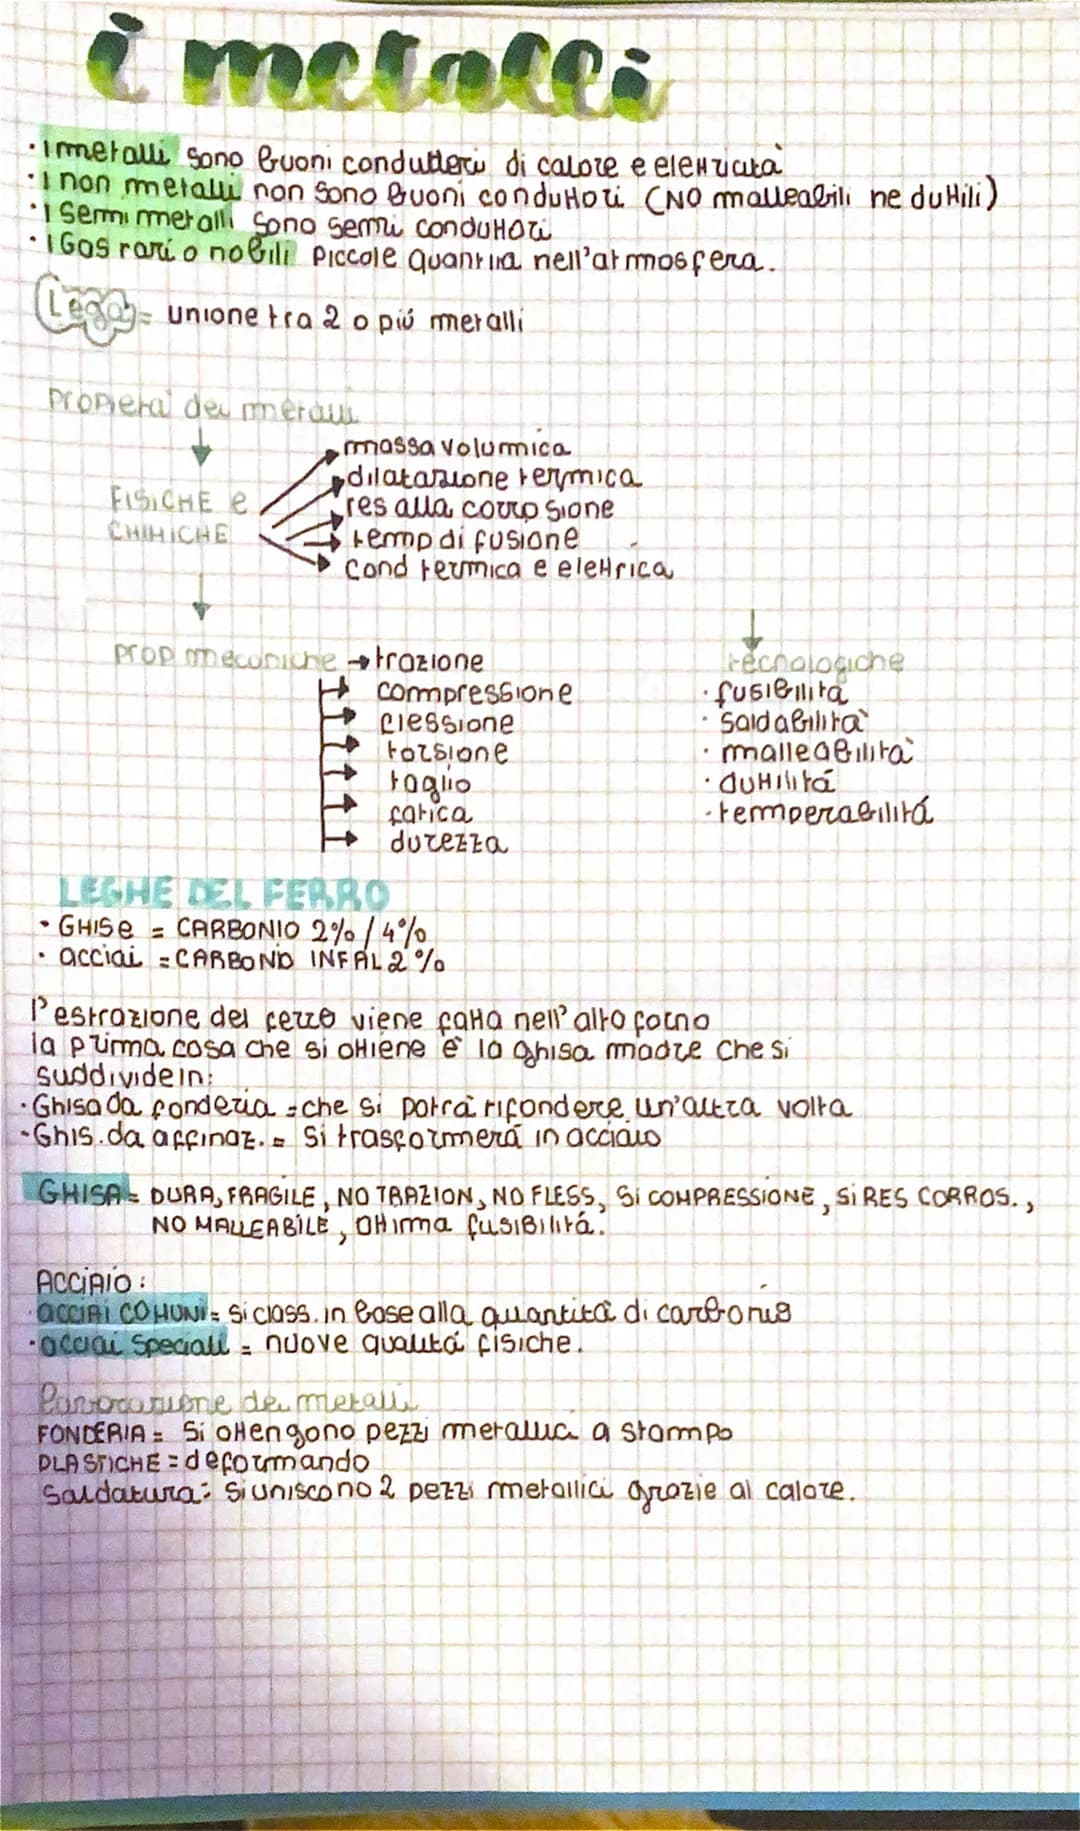 i metalli
· i metalli sono buoni condutteri di calore e elettricità
· i non metalli non sono buoni conduttori (NO malleabili ne duttili)
· i semi metalli sono semi conduttori
· i Gas rari o nobili piccole quantità nell'atmosfera.
Lega = unione tra 2 o più metalli
Proprietà dei metalli
FISICHE e CHIMICHE
massa volumica
dilatazione termica
res alla corrosione
temp di fusione
cond termica e elettrica
prop meccaniche → trazione
compressione
flessione
torsione
taglio
fatica
durezza
tecnologiche
· fusibilità
· saldabilità
· malleabilità
· duttilitá
· temperabilitá
LEGHE DEL FERRO
· GHISe = CARBONIO 2% / 4%
· acciai = CARBONIO INF AL 2%
l'estrazione del ferro viene fatta nell'alto forno
la prima cosa che si ottiene é la ghisa madre che si
suddivide in:
· Ghisa da fonderia = che si potrà rifondere un'altra volta
· Ghis. da affinaz. = si trasformerá in acciaio
GHISA = DURA, FRAGILE, NO TRAZION, NO FLESS, Si COMPRESSIONE, Si RES CORROS.,
NO MALLEABILE, Ottima fusiBilitá.
ACCIAIO:
· ACCIAI COMUNI = si class. in base alla quantità di carbonio
· acciai speciali = nuove qualitá fisiche.
Lavorazione dei metalli
FONDERIA = Si ottengono pezzi metallici a stampo
PLASTICHE = deformando
Saldatura: Si uniscono 2 pezzi metallici grazie al calore.